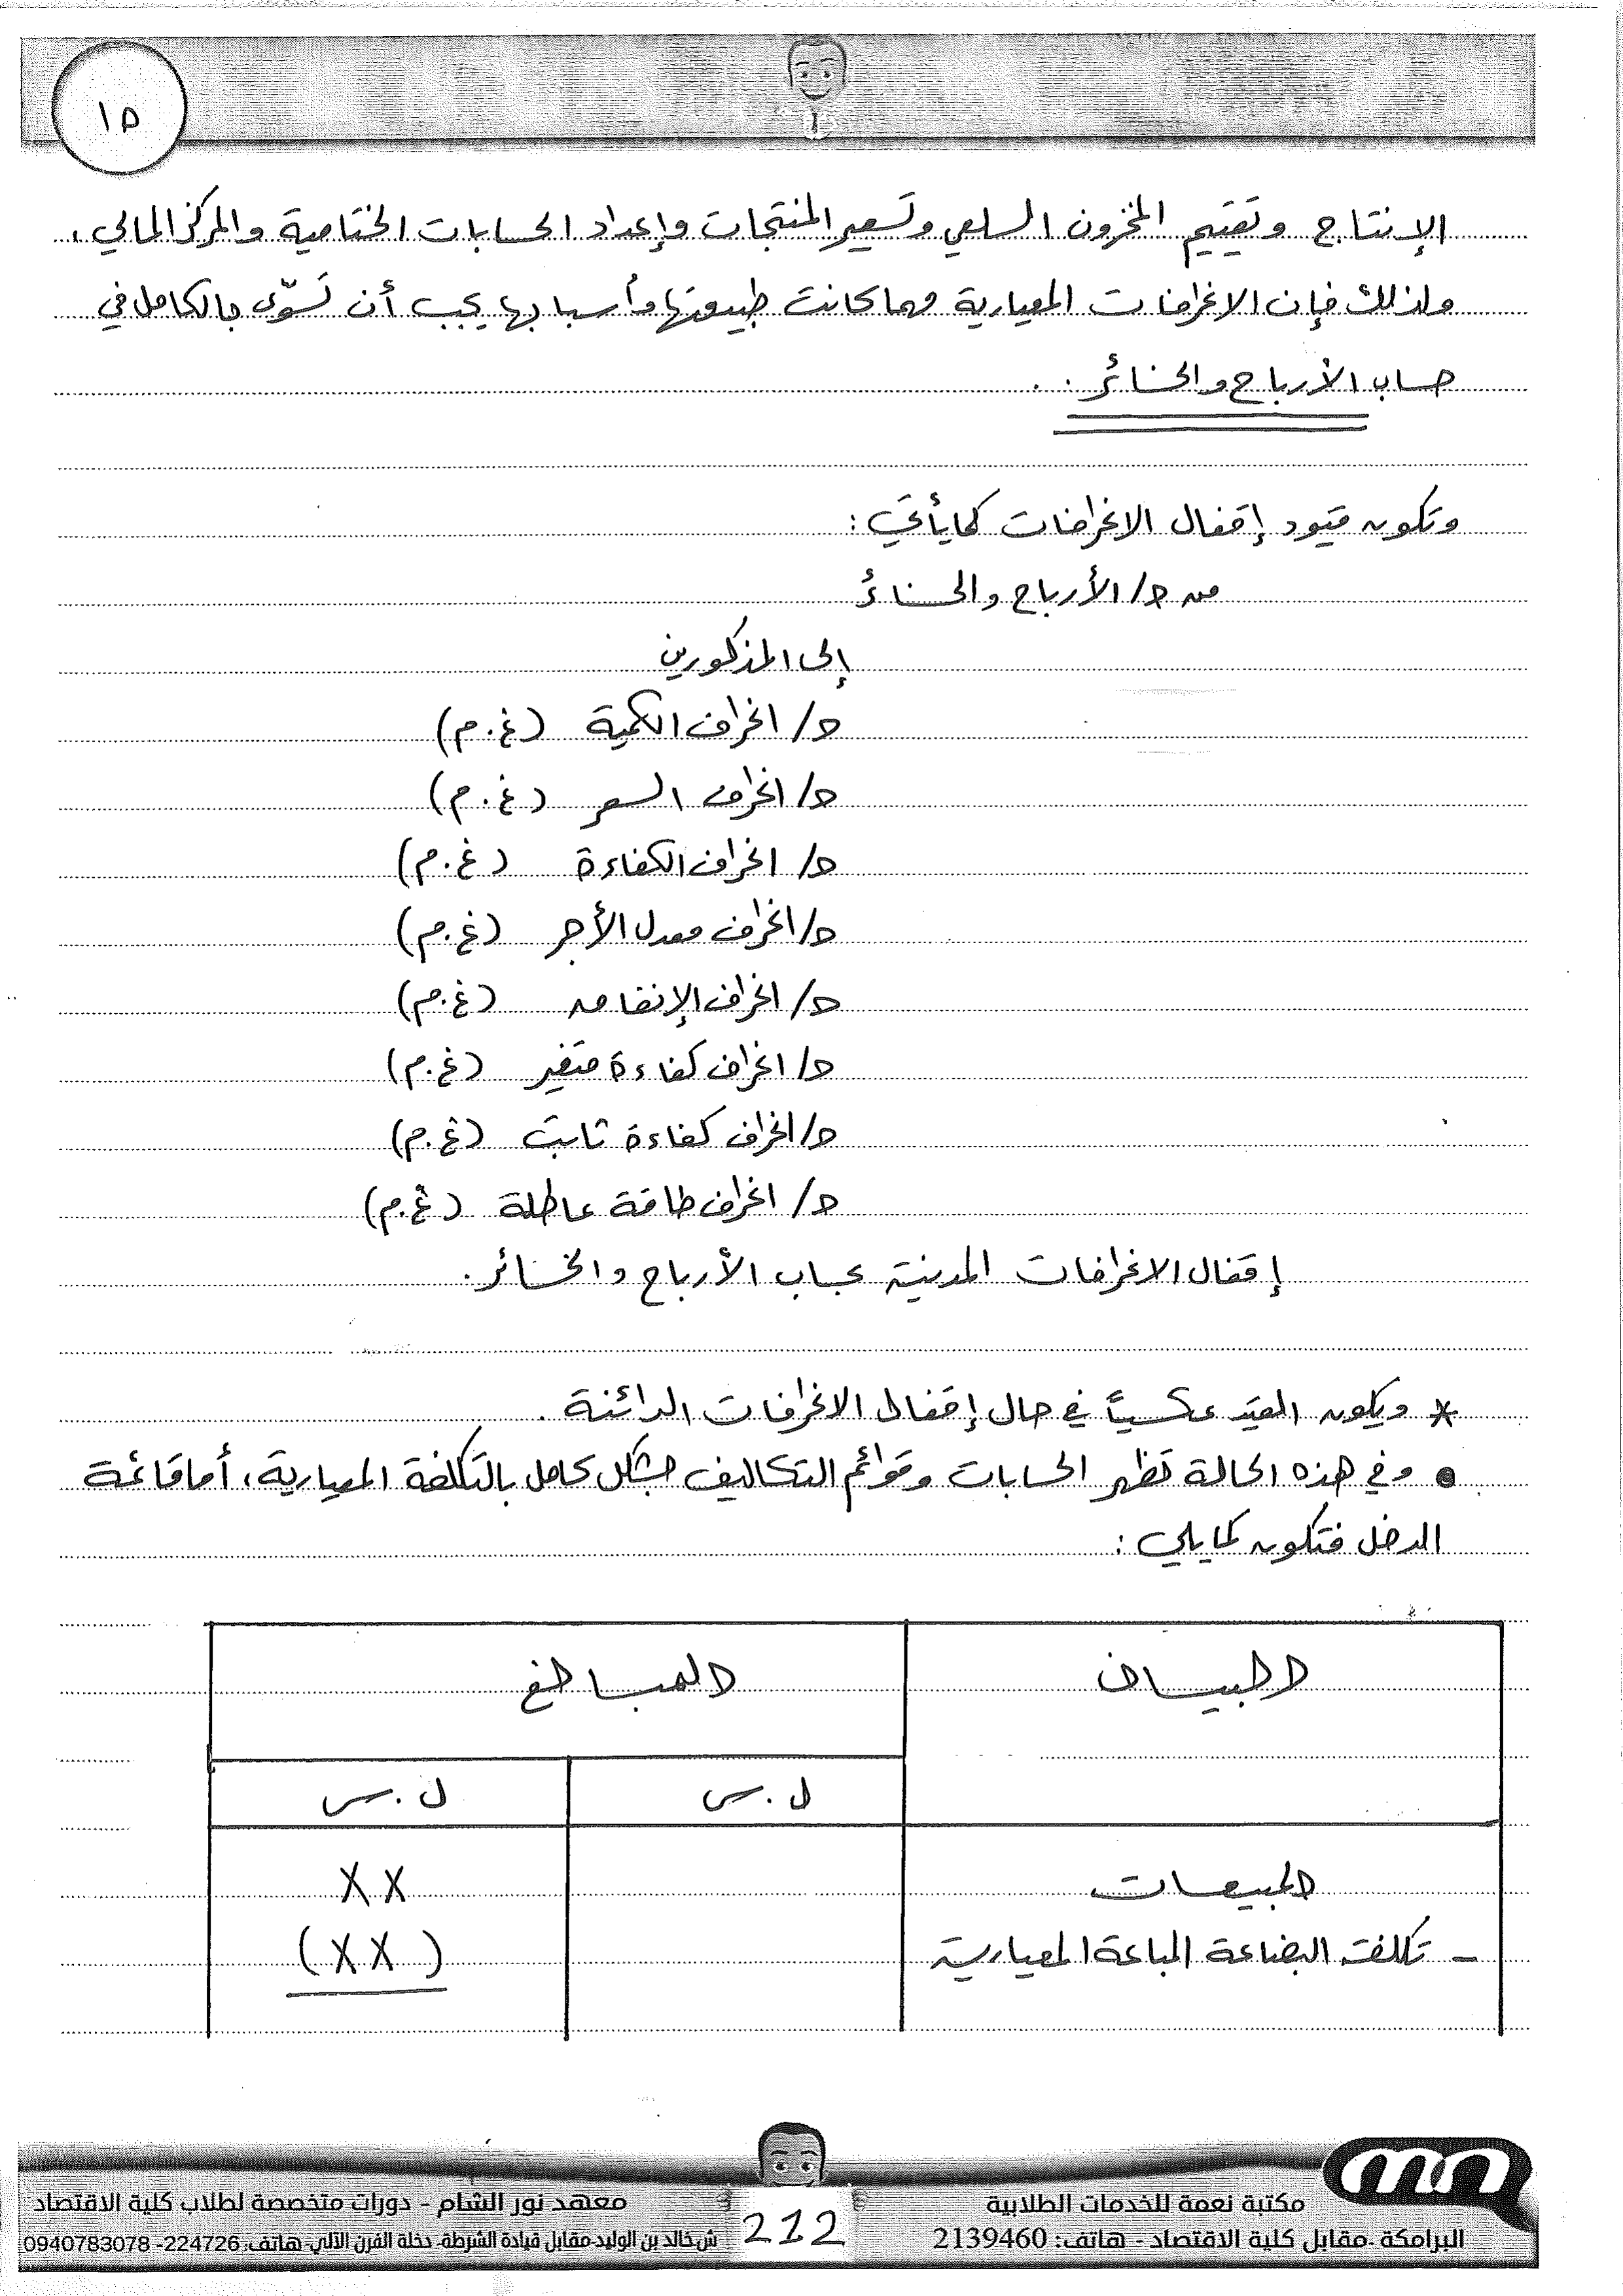 ١٥
الإنتاج وتقييم المخزون السلعي وتسعير المنتجات وإعداد الحسابات الختامية والمركز المالي،
ولذلك فإن الانحرافات المعيارية مهما كانت طبيعتها وأسبابها يجب أن تسوّى بالكامل في
حساب الأرباح والخسائر ..
وتكون قيود إقفال الانحرافات كما يأتي :
من ح/ الأرباح والخسائر
إلى المذكورين
ح/ انحراف الكمية (غ.م)
ح/ انحراف السعر (غ.م)
ح/ انحراف الكفاءة (غ.م)
ح/ انحراف معدل الأجر (غ.م)
ح/ انحراف الإنفاق (غ.م)
ح/ انحراف كفاءة متغير (غ.م)
ح/ انحراف كفاءة ثابت (غ.م)
ح/ انحراف طاقة عاطلة (غ.م)
إقفال الانحرافات المدينة بحساب الأرباح والخسائر.
* ويكون القيد عكسياً في حال إقفال الانحرافات الدائنة .
● وفي هذه الحالة تظهر الحسابات وقوائم التكاليف بشكل كامل بالتكلفة المعيارية، أما قائمة
الدخل فتكون كما يلي :
البيان المبالغ
ل.س ل.س
المبيعات XX
- تكلفة البضاعة المباعة المعيارية (XX)
مكتبة نعمة للخدمات الطلابية
البرامكة -مقابل كلية الاقتصاد - هاتف: 2139460
212
معهد نور الشام - دورات متخصصة لطلاب كلية الاقتصاد
ش خالد بن الوليد-مقابل قيادة الشرطة- دخلة الفرن الآلي- هاتف: 224726- 0940783078